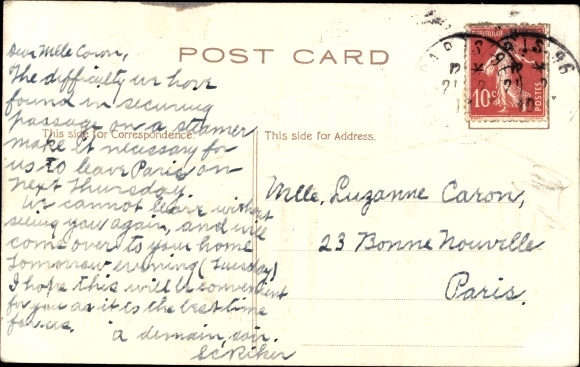 POST CARD
This side for Correspondence.
This side for Address.
Dear Mlle Caron,
The difficulty we have
found in securing
passage on a steamer
make it necessary for
us to leave Paris on
next Thursday.
We cannot leave without
seeing you again, and will
come over to your home
tomorrow evening (Tuesday)
I hope this will be convenient
for you as it is the best time
for us.
a demain, soir.
S.C. Riker
Mlle, Suzanne Caron,
23 Bonne Nouville
Paris.
10c
POSTES
PARIS